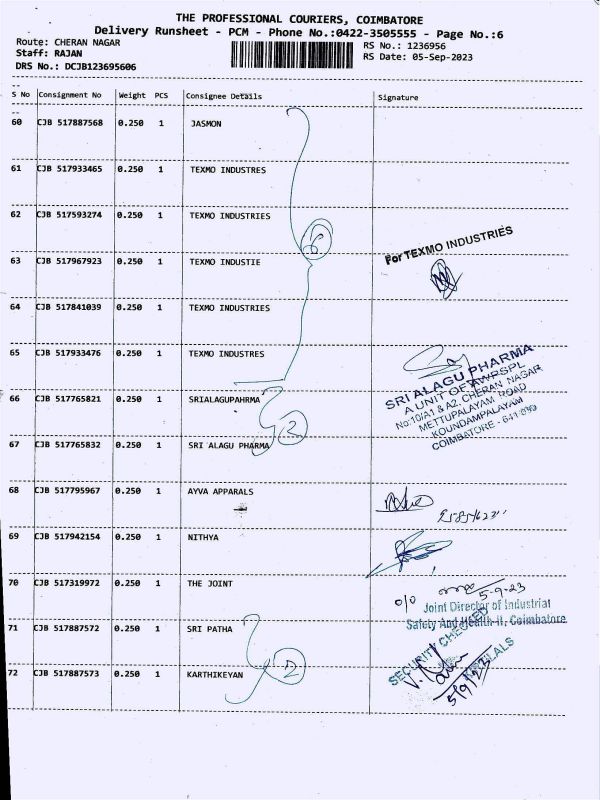 THE PROFESSIONAL COURIERS, COIMBATORE
Delivery Runsheet - PCM - Phone No.:0422-3505555 - Page No.:6
Route: CHERAN NAGAR
Staff: RAJAN
DRS No.: DCJB123695606
RS No.: 1236956
RS Date: 05-Sep-2023
S No Consignment No Weight PCS Consignee Details Signature
60 CJB 517887568 0.250 1 JASMON
61 CJB 517933465 0.250 1 TEXMO INDUSTRES
62 CJB 517593274 0.250 1 TEXMO INDUSTRIES
63 CJB 517967923 0.250 1 TEXMO INDUSTIE
For TEXMO INDUSTRIES
64 CJB 517841039 0.250 1 TEXMO INDUSTRIES
65 CJB 517933476 0.250 1 TEXMO INDUSTRES
SRI ALAGU PHARMA
A UNIT OF AWPSPL
No:10/A1 & A2, CHERAN NAGAR
METTUPALAYAM ROAD
KOUNDAMPALAYAM
COIMBATORE - 641
66 CJB 517765821 0.250 1 SRIALAGUPAHRMA
2
67 CJB 517765832 0.250 1 SRI ALAGU PHARMA
68 CJB 517795967 0.250 1 AYVA APPARALS
69 CJB 517942154 0.250 1 NITHYA
70 CJB 517319972 0.250 1 THE JOINT
5-9-23
Joint Director of Industrial
Safety And Health-II, Coimbatore
71 CJB 517887572 0.250 1 SRI PATHA
SECURITY CHECKED
2
72 CJB 517887573 0.250 1 KARTHIKEYAN
5/9/23